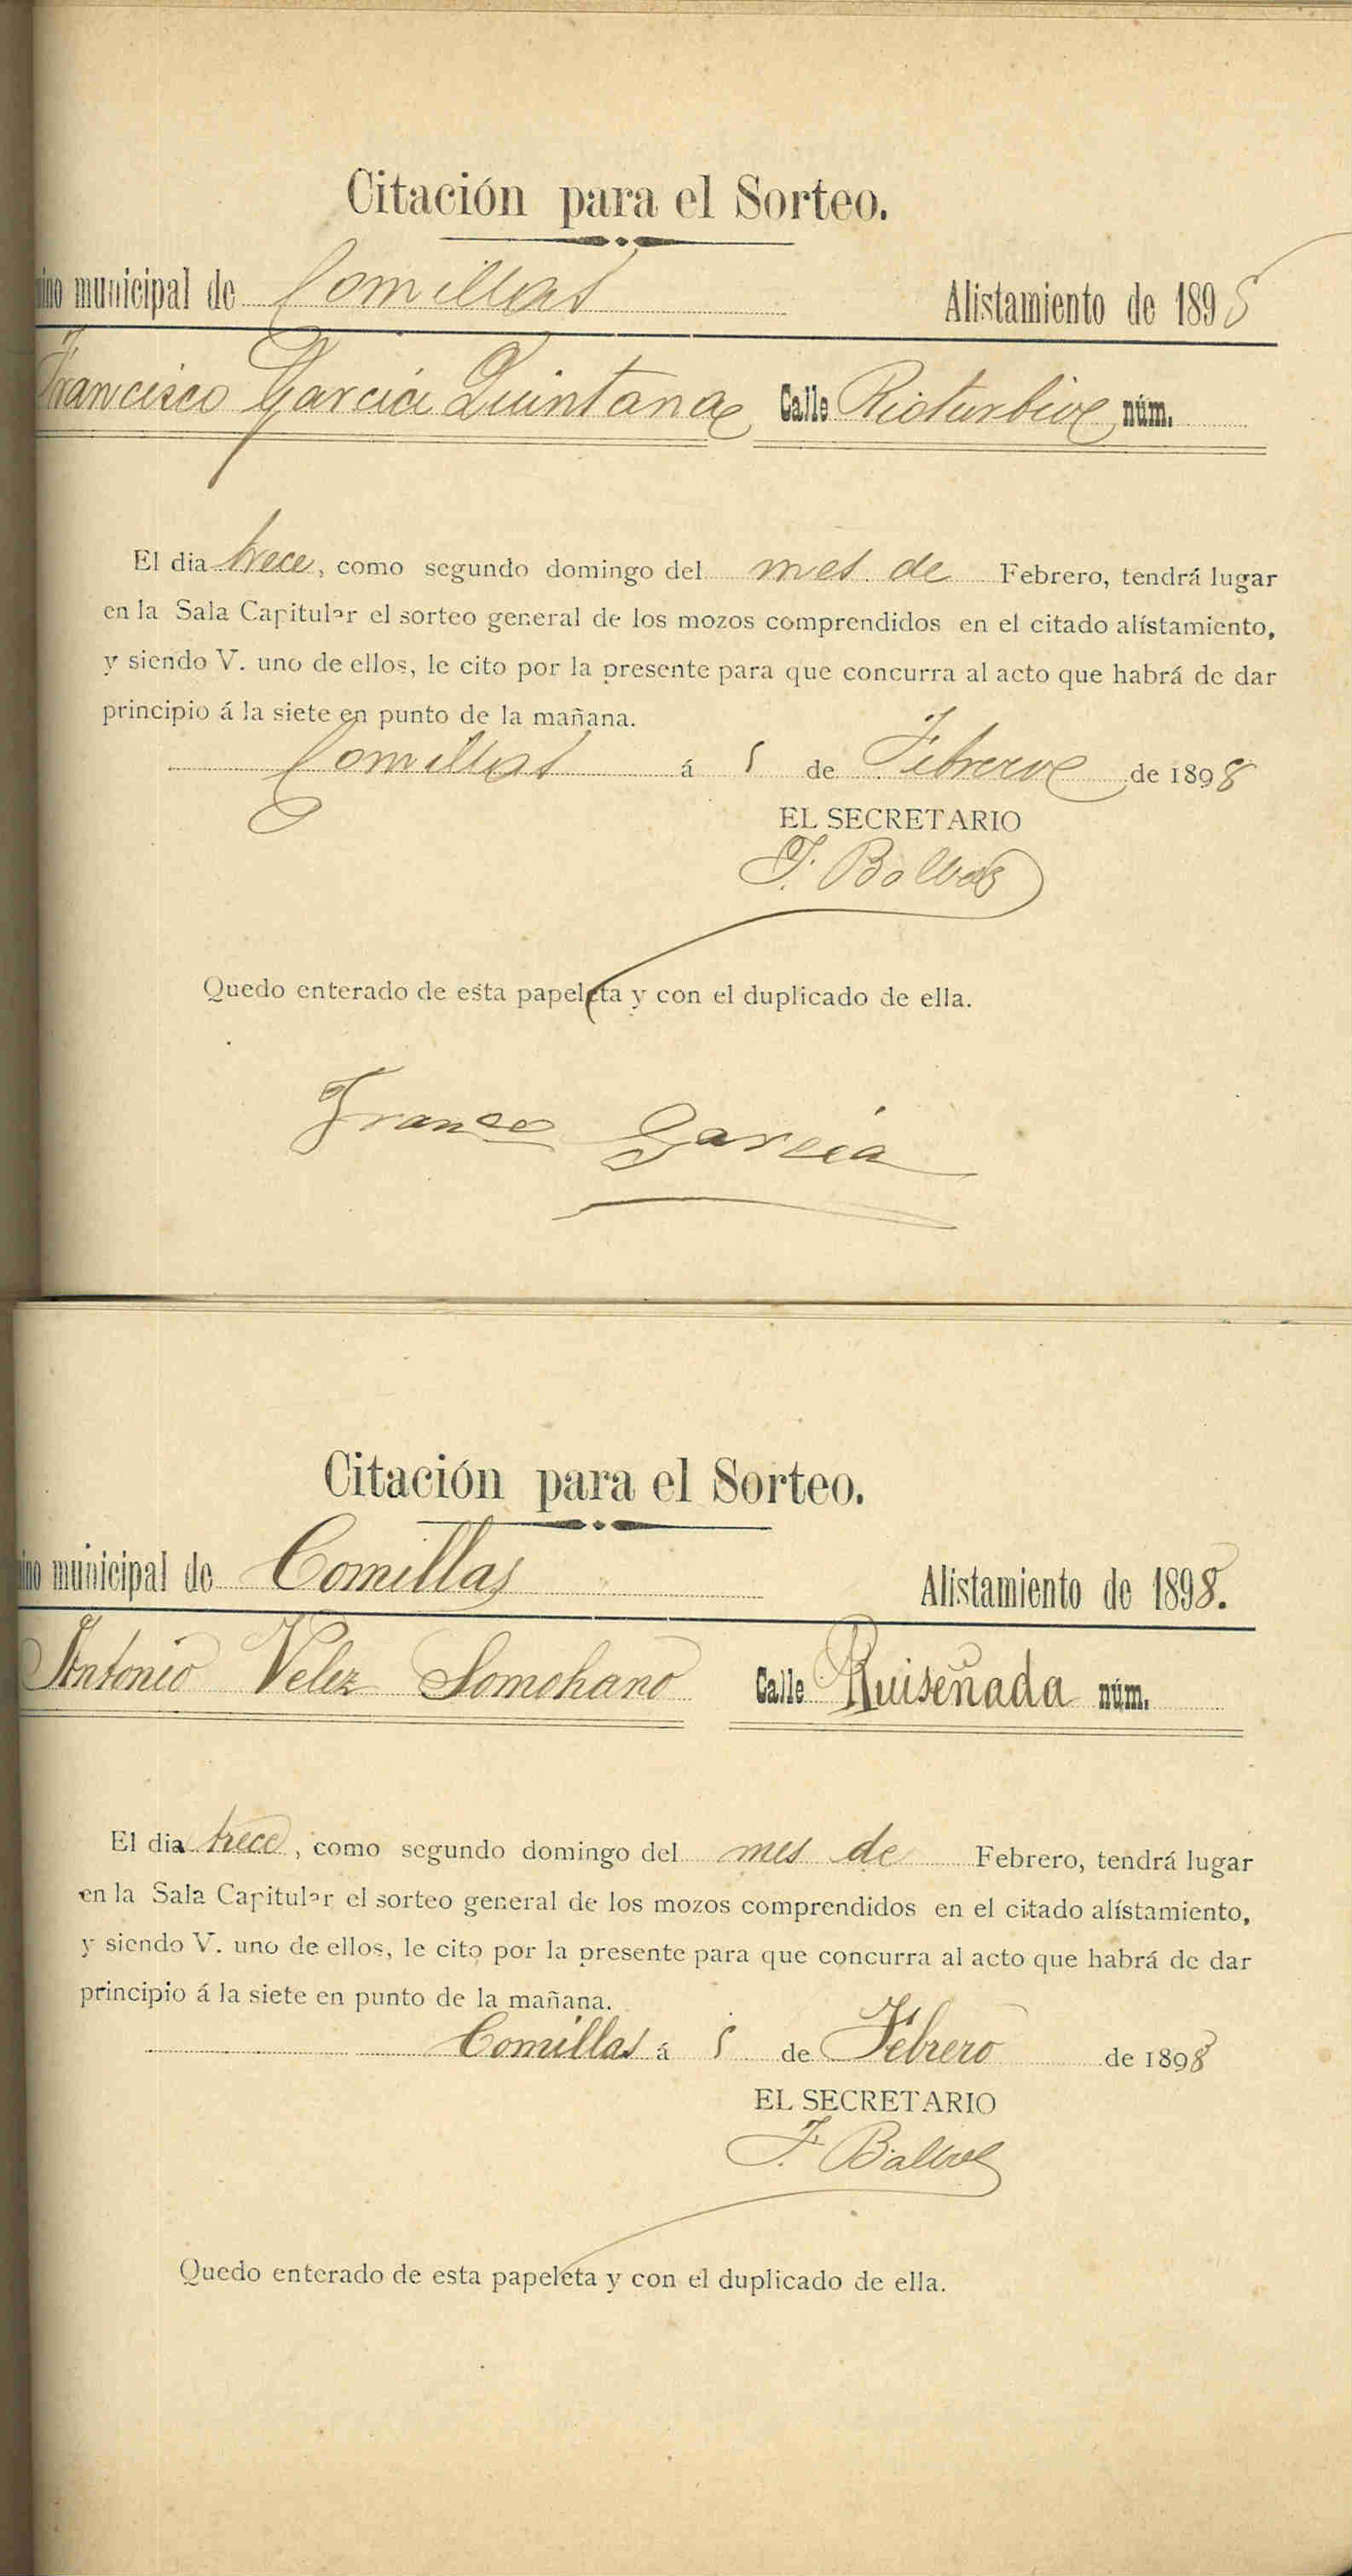 Citación para el Sorteo.
ino municipal de Comillas Alistamiento de 1898
Francisco Garcia Quintana Calle Rioturbio núm.
El dia trece, como segundo domingo del mes de Febrero, tendrá lugar
en la Sala Capitular el sorteo general de los mozos comprendidos en el citado alístamiento,
y siendo V. uno de ellos, le cito por la presente para que concurra al acto que habrá de dar
principio á la siete en punto de la mañana.
Comillas á 5 de Febrero de 1898
EL SECRETARIO
F. Balbas
Quedo enterado de esta papeleta y con el duplicado de ella.
Franco Garcia
Citación para el Sorteo.
ino municipal de Comillas Alistamiento de 1898.
Antonio Velez Somohano Calle Ruiseñada núm.
El dia trece, como segundo domingo del mes de Febrero, tendrá lugar
en la Sala Capitular el sorteo general de los mozos comprendidos en el citado alístamiento,
y siendo V. uno de ellos, le cito por la presente para que concurra al acto que habrá de dar
principio á la siete en punto de la mañana.
Comillas á 5 de Febrero de 1898
EL SECRETARIO
F. Balbas
Quedo enterado de esta papeleta y con el duplicado de ella.